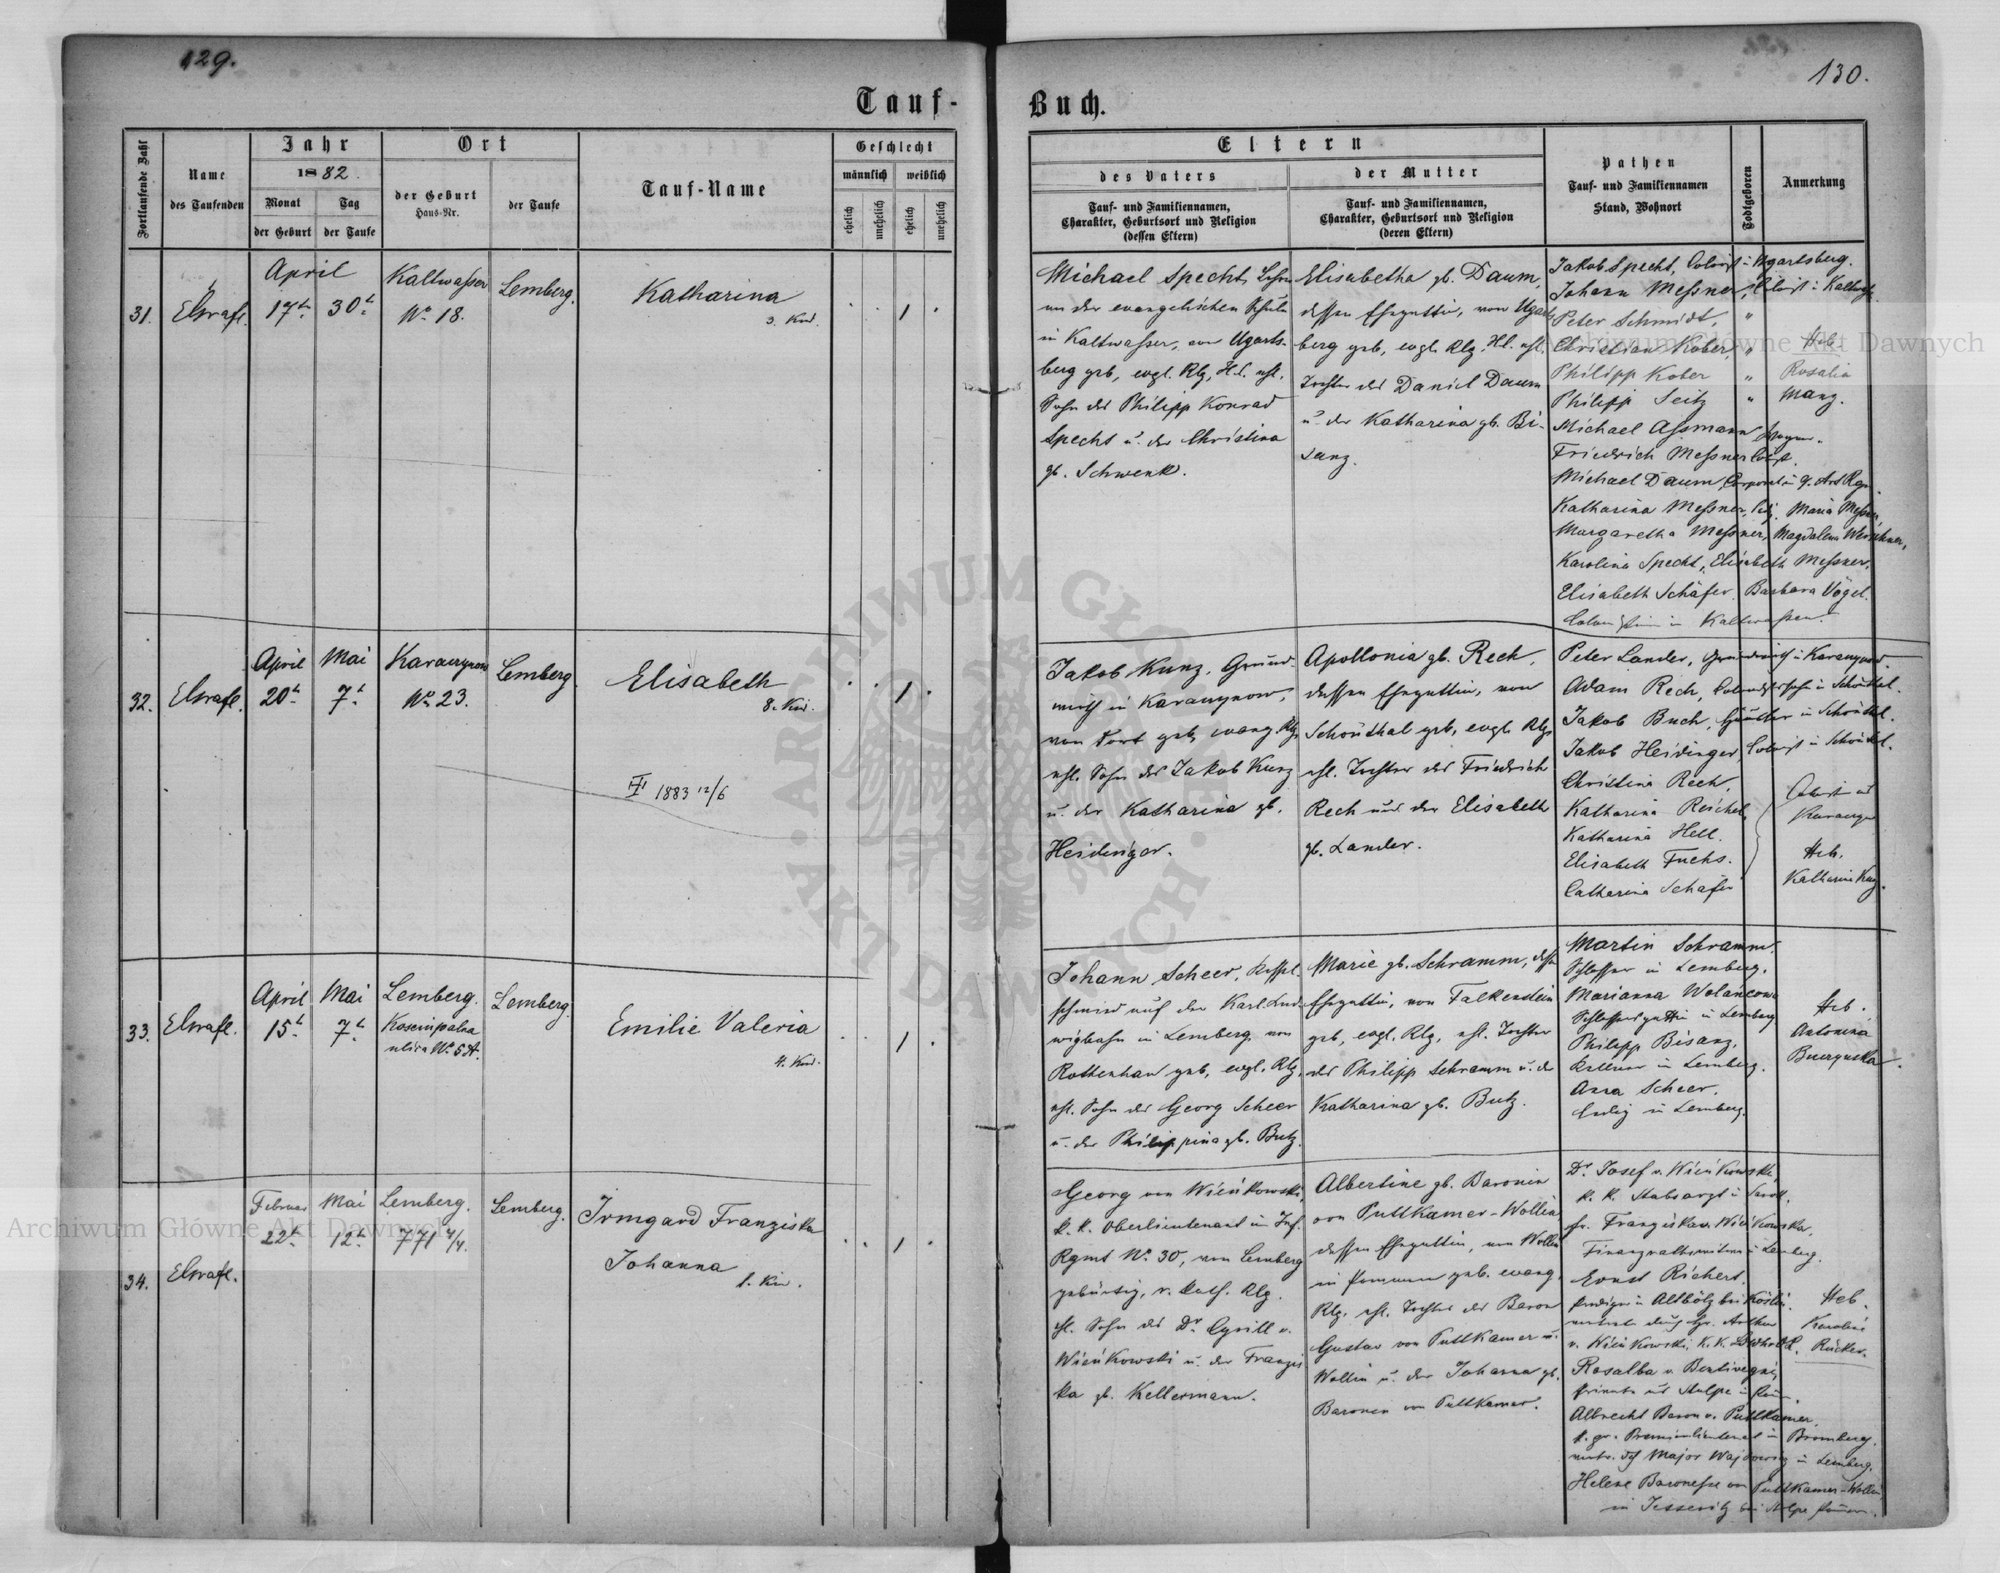 129.
130.
Tauf-
Buch.
Fortlaufende Zahl
Name
des Taufenden
Jahr
1882.
Monat
der Geburt
Tag
der Taufe
Ort
der Geburt
Haus-Nr.
der Taufe
Tauf-Name
Geschlecht
männlich
weiblich
ehelich
unehelich
ehelich
unehelich
Eltern
des Vaters
Tauf- und Familiennamen,
Charakter, Geburtsort und Religion
(dessen Eltern)
der Mutter
Tauf- und Familiennamen,
Charakter, Geburtsort und Religion
(deren Eltern)
Pathen
Tauf- und Familiennamen
Stand, Wohnort
Todtgeboren
Anmerkung
31.
April
17t
30t
Kaltwasser
No 18.
Lemberg.
Katharina
3. Kind.
1
Michael Specht, Lehrer
an der evangelischen Schule
in Kaltwasser, von Ugarts-
berg geb, evgl. Rlg, H.C. ehl.
Sohn des Philipp Konrad
Specht u. der Christina
gb. Schwenk.
Elisabetha gb. Daum,
dessen Ehegattin, von Ugarts
berg geb, evgl. Rlg. H.C. ehl.
Tochter des Daniel Daum
u. der Katharina gb. Bi-
sanz.
Jakob Specht, Colonist in Ugartsberg.
Johann Meßner, Colonist in Kaltwasser
Peter Schmidt, "
Christian Kober, "
Philipp Kober "
Philipp Seitz "
Michael Aßmann
Friedrich Meßner
Michael Daum, Corporal in 9. Art Rgm.
Katharina Meßner, Maria Meßner,
Margaretha Meßner, Magdalena
Karolina Specht, Elisabeth Meßner,
Elisabeth Schäfer, Barbara Vögel.
in Kaltwasser.
Heb.
Rosalia
Manz.
32.
April
20t
Mai
7t
No 23.
Lemberg.
Elisabeth
8. Kind.
1883 12/6
1
Jakob Kunz, Grund-
wirth in
geb, evang Rlg,
ehl. Sohn des Jakob Kunz
u. der Katharina gb.
Heidinger.
Apollonia gb. Rech,
dessen Ehegattin, von
Schönthal geb, evgl. Rlg,
ehl. Tochter des Friedrich
Rech und der Elisabeth
gb. Lander.
Peter Lander, Grundwirth in
Adam Rech, in Schönthal.
Jakob Buch, in Schönthal.
Jakob Heidinger, Colonist in Schönthal.
Christina Rech,
Katharina Reichel,
Katharina Hell.
Elisabeth Fuchs.
Catharina Schäfer
Heb.
Katharina Kunz.
33.
April
15t
Mai
7t
Lemberg.
ulica No 5 A.
Lemberg.
Emilie Valeria
4. Kind.
1
Johann Scheer, Kessel-
schmied auf der Karl Lud-
wigbahn in Lemberg, von
Rottenhan geb, evgl. Rlg,
ehl. Sohn des Georg Scheer
u. der Philippina gb. Butz.
Marie gb. Schramm, dessen
Ehegattin, von Falkenstein
geb, evgl. Rlg, ehl. Tochter
des Philipp Schramm u. der
Katharina gb. Butz.
Martin Schramm,
Schlosser in Lemberg.
Marianna
Schlossersgattin in Lemberg
Philipp Bisanz,
Kellner in Lemberg.
Anna Scheer,
ledig in Lemberg.
Heb.
Antonina
34.
Februar
22t
Mai
12t
Lemberg.
771 4/4.
Lemberg.
Irmgard Franziska
Johanna
1. Kind.
1
Georg von Wieńkowski,
k. k. Oberlieutenant im Inf.
Rgmt No. 30, von Lemberg
gebürtig, r. kath. Rlg.
ehl. Sohn des Dr. Cyrill v.
Wieńkowski u. der Franzis
ka gb. Kellermann.
Albertine gb. Baronin
von Puttkamer-Wollin
dessen Ehegattin, von Wollin
in Pommern geb. evang.
Rlg. ehl. Tochter des Baron
Gustav von Puttkamer u.
Wollin u. der Johanna gb.
Baronin von Puttkamer.
Dr. Josef v. Wieńkowski,
k. k. Stabsarzt in
Fr. Franziska v. Wieńkowska,
in Lemberg.
Ernst Richert,
Prediger in Altbölz bei Köslin.
v. Wieńkowski, k. k.
Rosalba v.
Albrecht Baron v. Puttkamer,
in Bromberg.
Major in Lemberg.
Helene Baronesse von Puttkamer-Wollin
Heb.
Karoline
Rücker.
Archiwum Główne Akt Dawnych
Archiwum Główne Akt Dawnych
ARCHIWUM GŁÓWNE AKT DAWNYCH